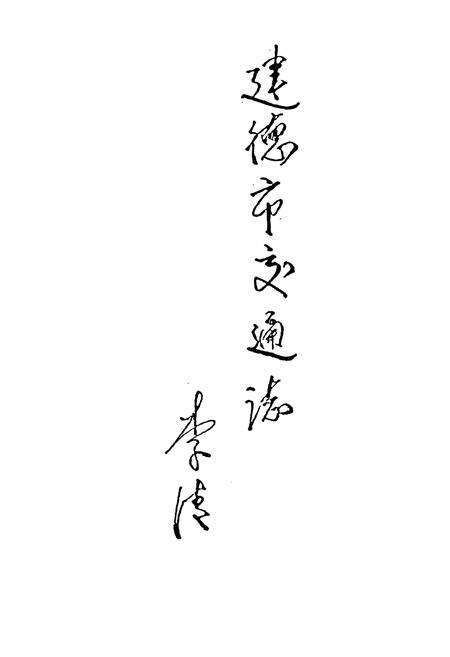 建德市交通誌
李清